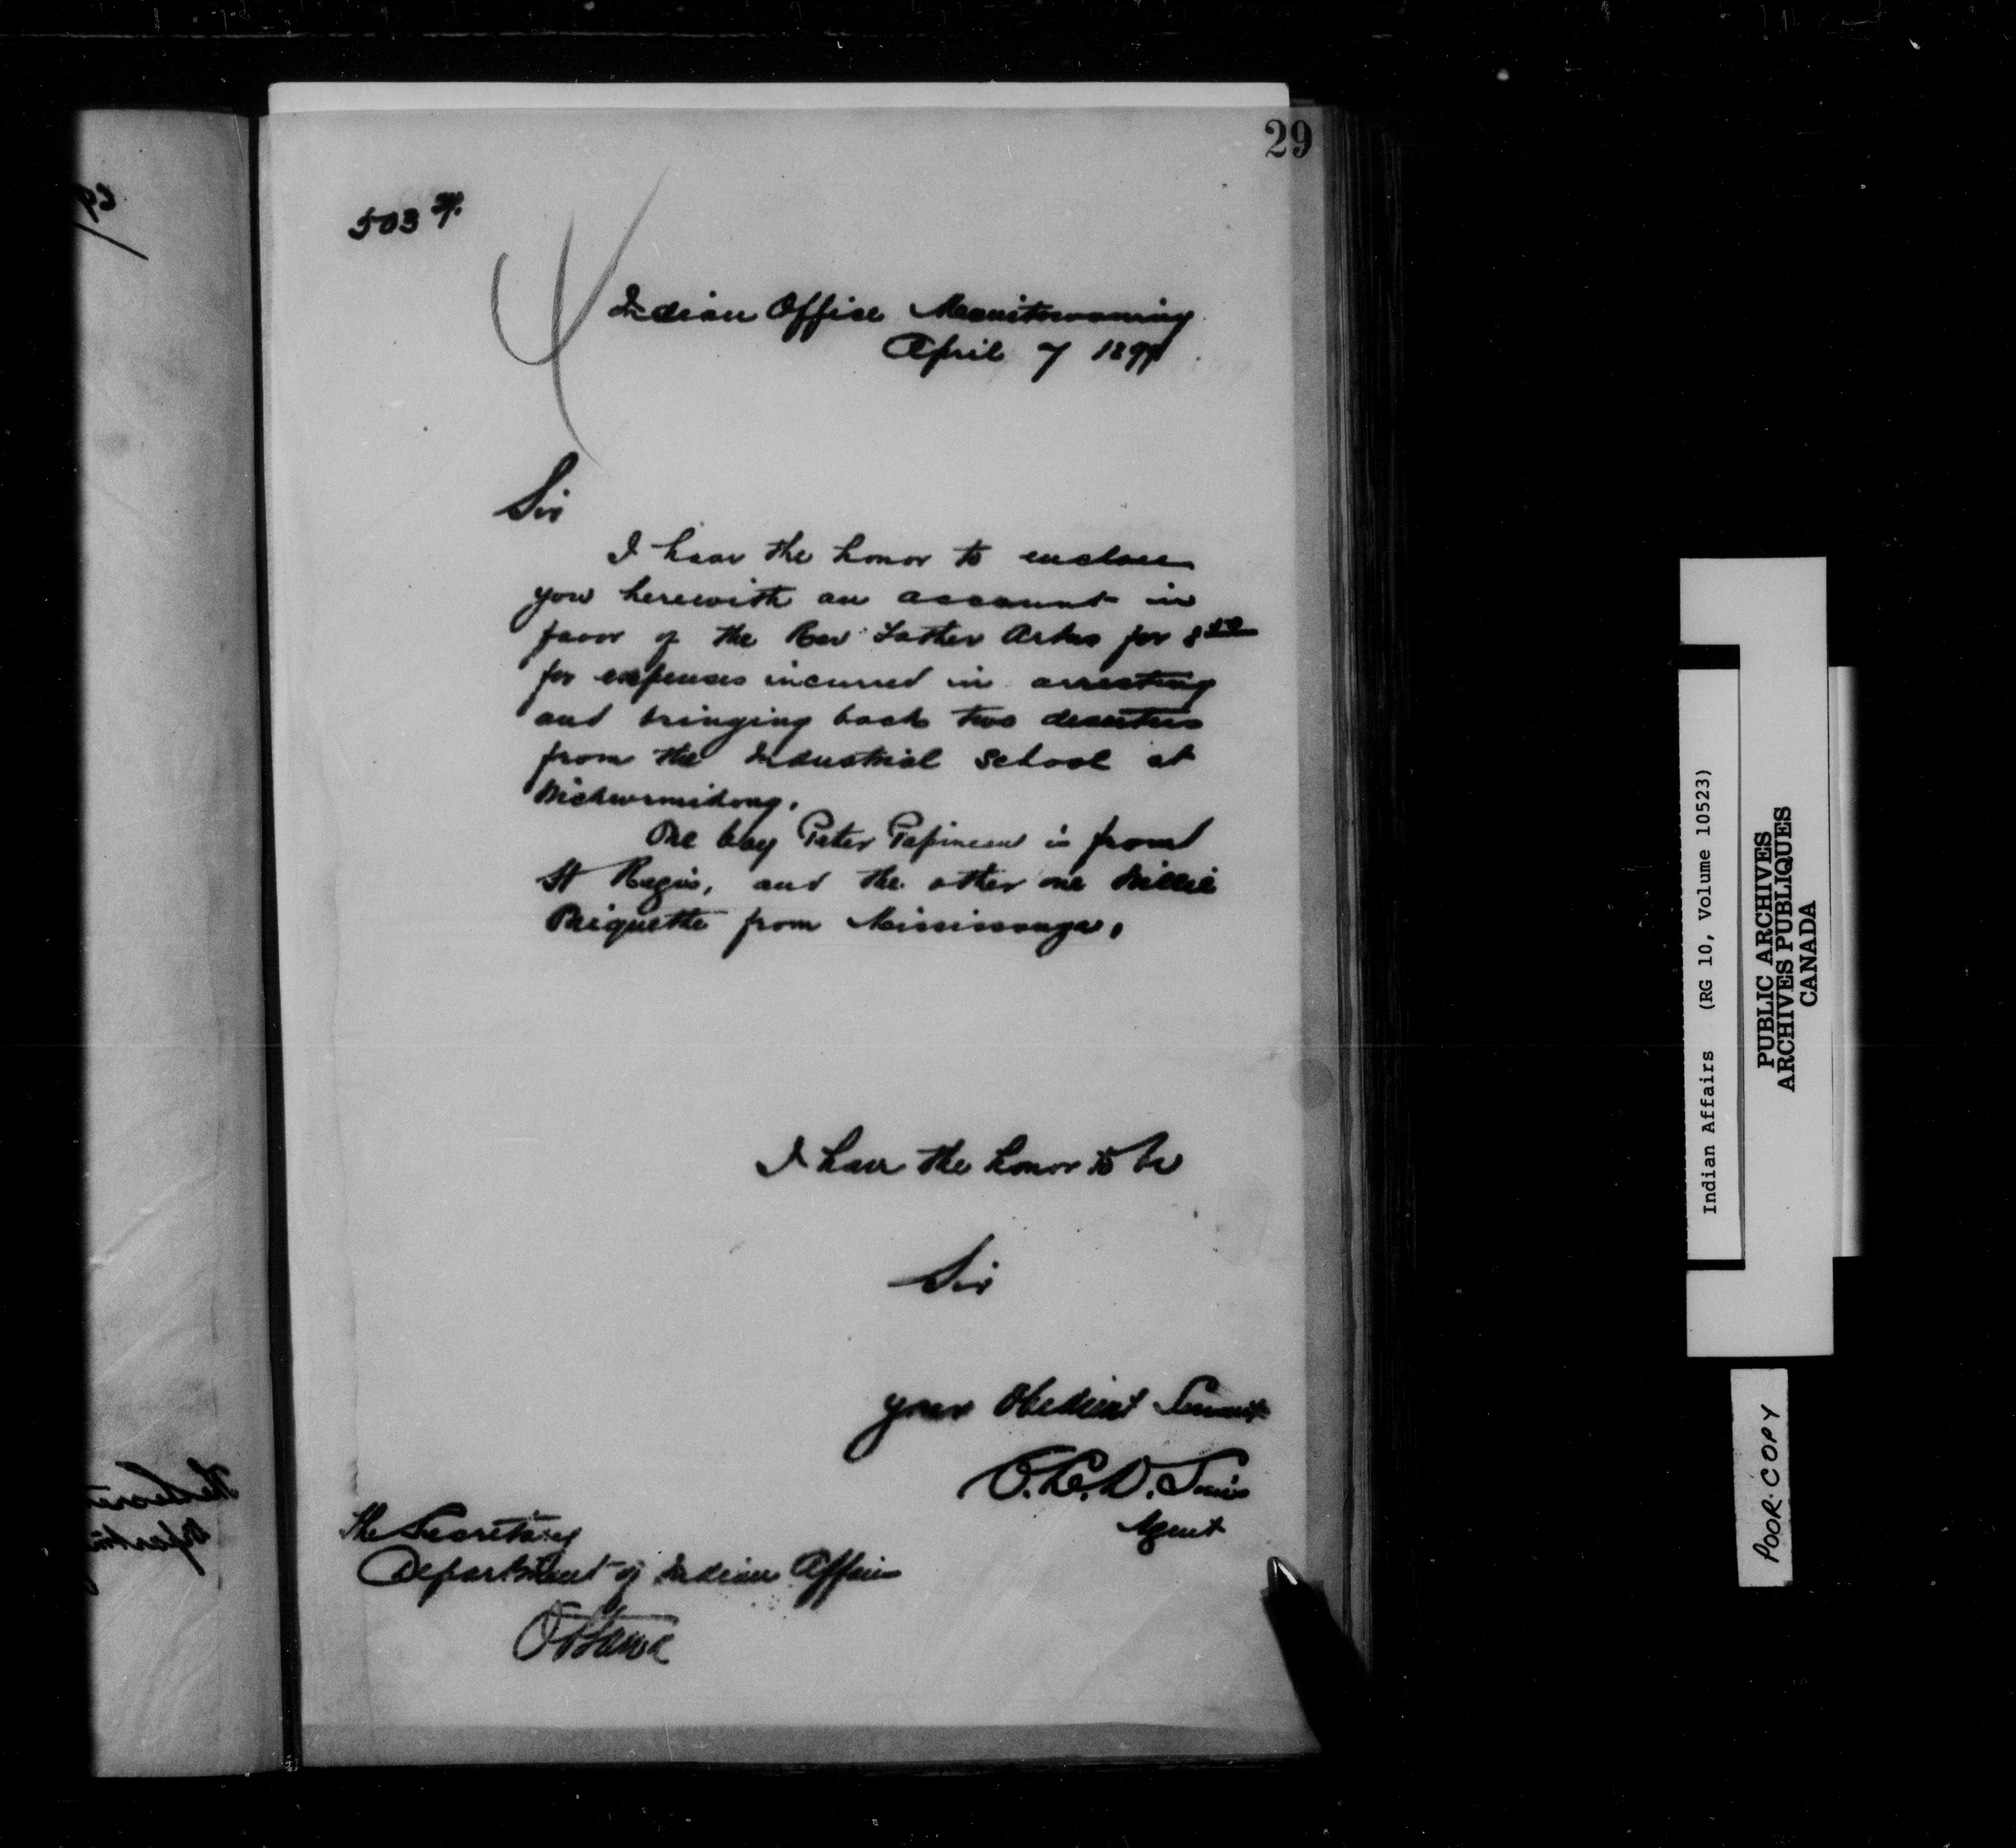 29
503
Indian Office Manitowaning
April 7 1897
Sir
I have the honor to enclose
you herewith an account in
favor of the Rev Father Artus for
for expenses incurred in arresting
and bringing back two deserters
from the Industrial School at
Wickwemikong.
One boy Peter Papineau is from
St Regis, and the other one Willie
from Mississauga.
I have the honor to be
Sir
your Obedient Servant
Agent
The Secretary
Department of Indian Affairs
Ottawa
Indian Affairs (RG 10, Volume 10523)
PUBLIC ARCHIVES
ARCHIVES PUBLIQUES
CANADA
POOR COPY